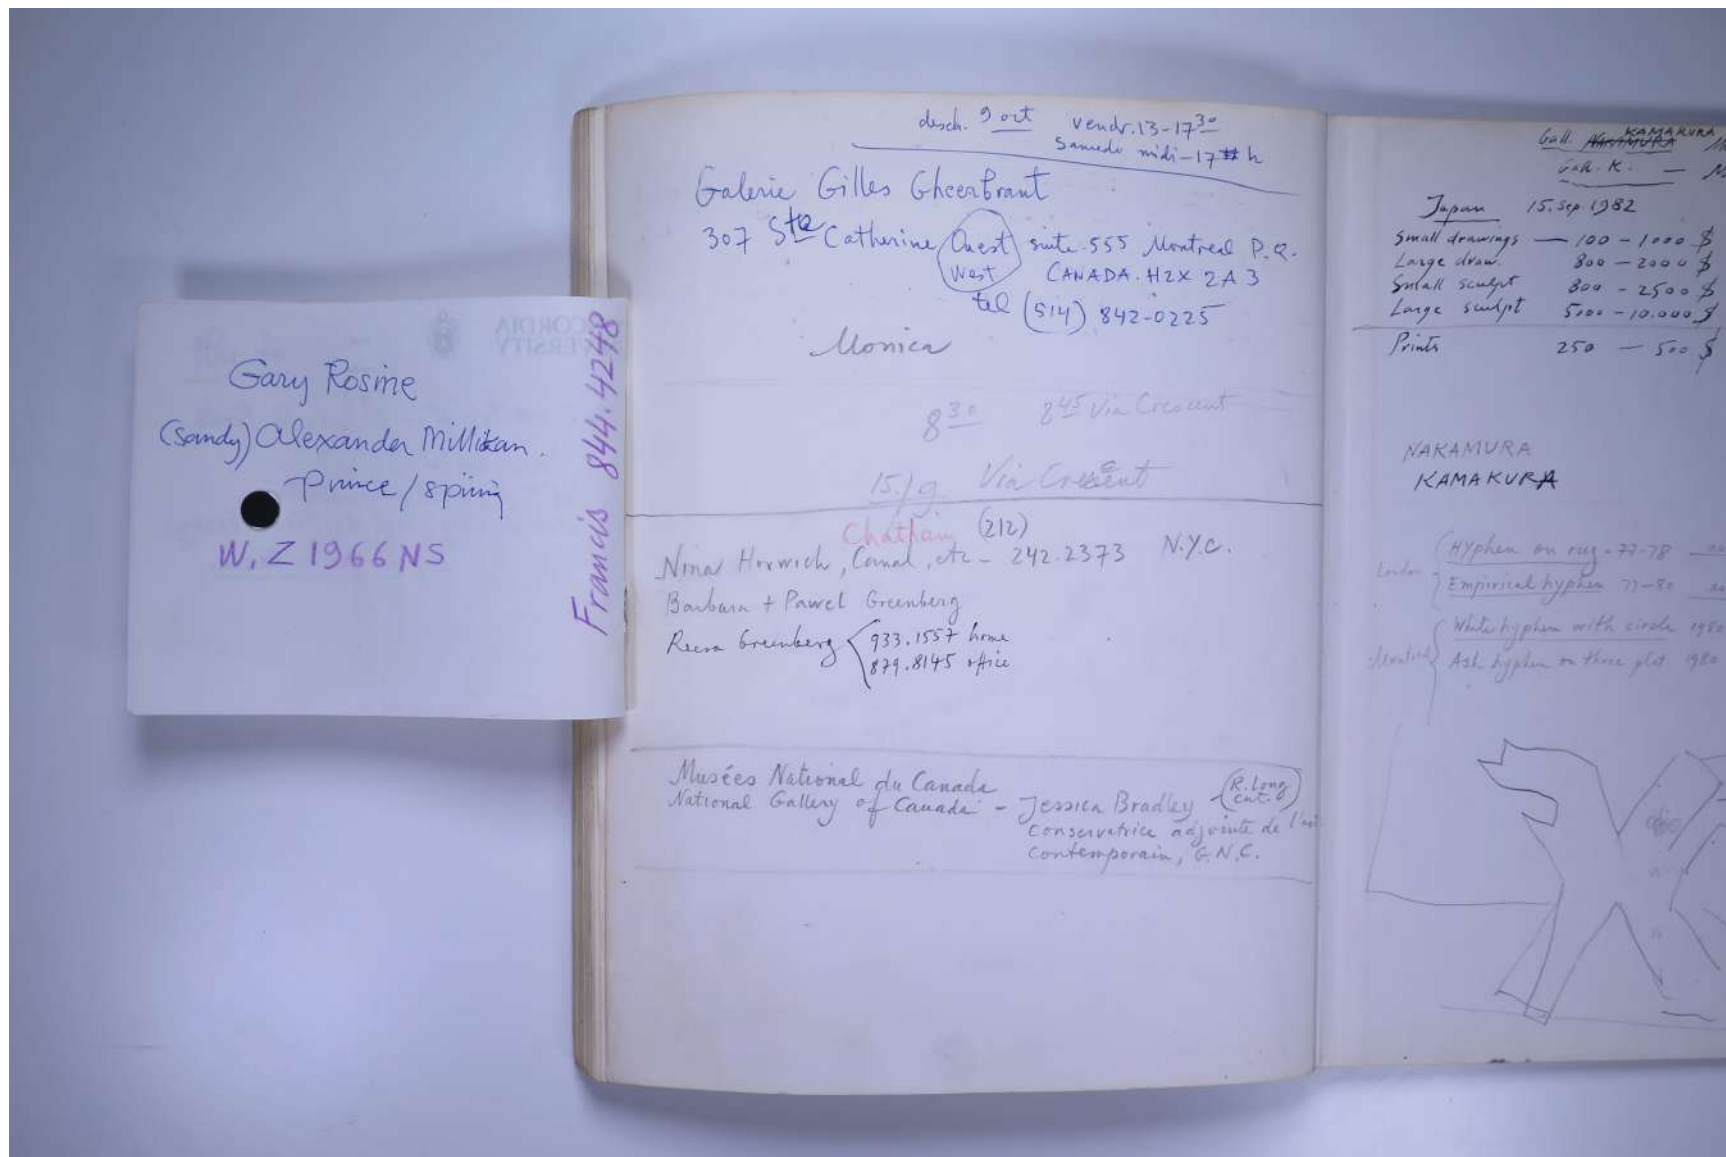 Gary Rosine
(Sandy) Alexander Millikan.
Prince / Spring
W.Z 1966 NS
Francis 844.4248
CORDIA
VERSITY
desch. 9 oct vendr. 13-17 30
Samedi midi-17 h
Galerie Gilles Gheerbrant
307 Ste Catherine Ouest suite 555 Montreal P.Q.
West CANADA. H2X 2A3
tel (514) 842-0225
Monica
8 30 8 45 Via Crescent
15./9. Via Crescent
Chatham (212)
Nina Horwich, Camal, etc - 242.2373 N.Y.C.
Barbara + Pawel Greenberg
Reesa Greenberg 933.1557 home
879.8145 office
Musées National du Canada
National Gallery of Canada - Jessica Bradley - (R. Long cat.)
Conservatrice adjointe de l'art
Contemporain, G.N.C.
Gall. NAKAMURA KAMAKURA
Gall. K. —
Japan 15. Sep. 1982
Small drawings — 100 - 1000 $
Large draw. 800 - 2000 $
Small sculpt 800 - 2500 $
Large sculpt 5000 - 10.000 $
Prints 250 — 500 $
NAKAMURA
KAMAKURA
London
Hyphen on rug - 77-78
Empirical hyphen 77-80
Montreal
White hyphen with circle 1980
Ash hyphen on three plat 1980